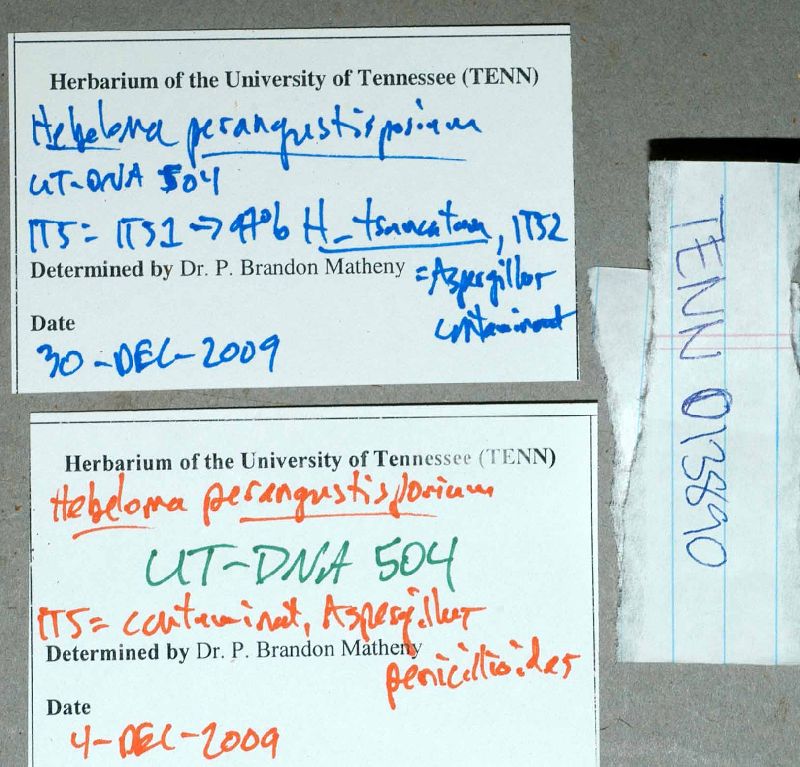 Herbarium of the University of Tennessee (TENN)
Hebeloma perangustisporium
UT-DNA 504
ITS = ITS1 → 97% H_truncatum, ITS2
Determined by Dr. P. Brandon Matheny
= Aspergillus
contaminant
Date
30-DEC-2009
Herbarium of the University of Tennessee (TENN)
Hebeloma perangustisporium
UT-DNA 504
ITS = contaminat, Aspergillus
Determined by Dr. P. Brandon Matheny
penicillioides
Date
4-DEC-2009
TENN 013890